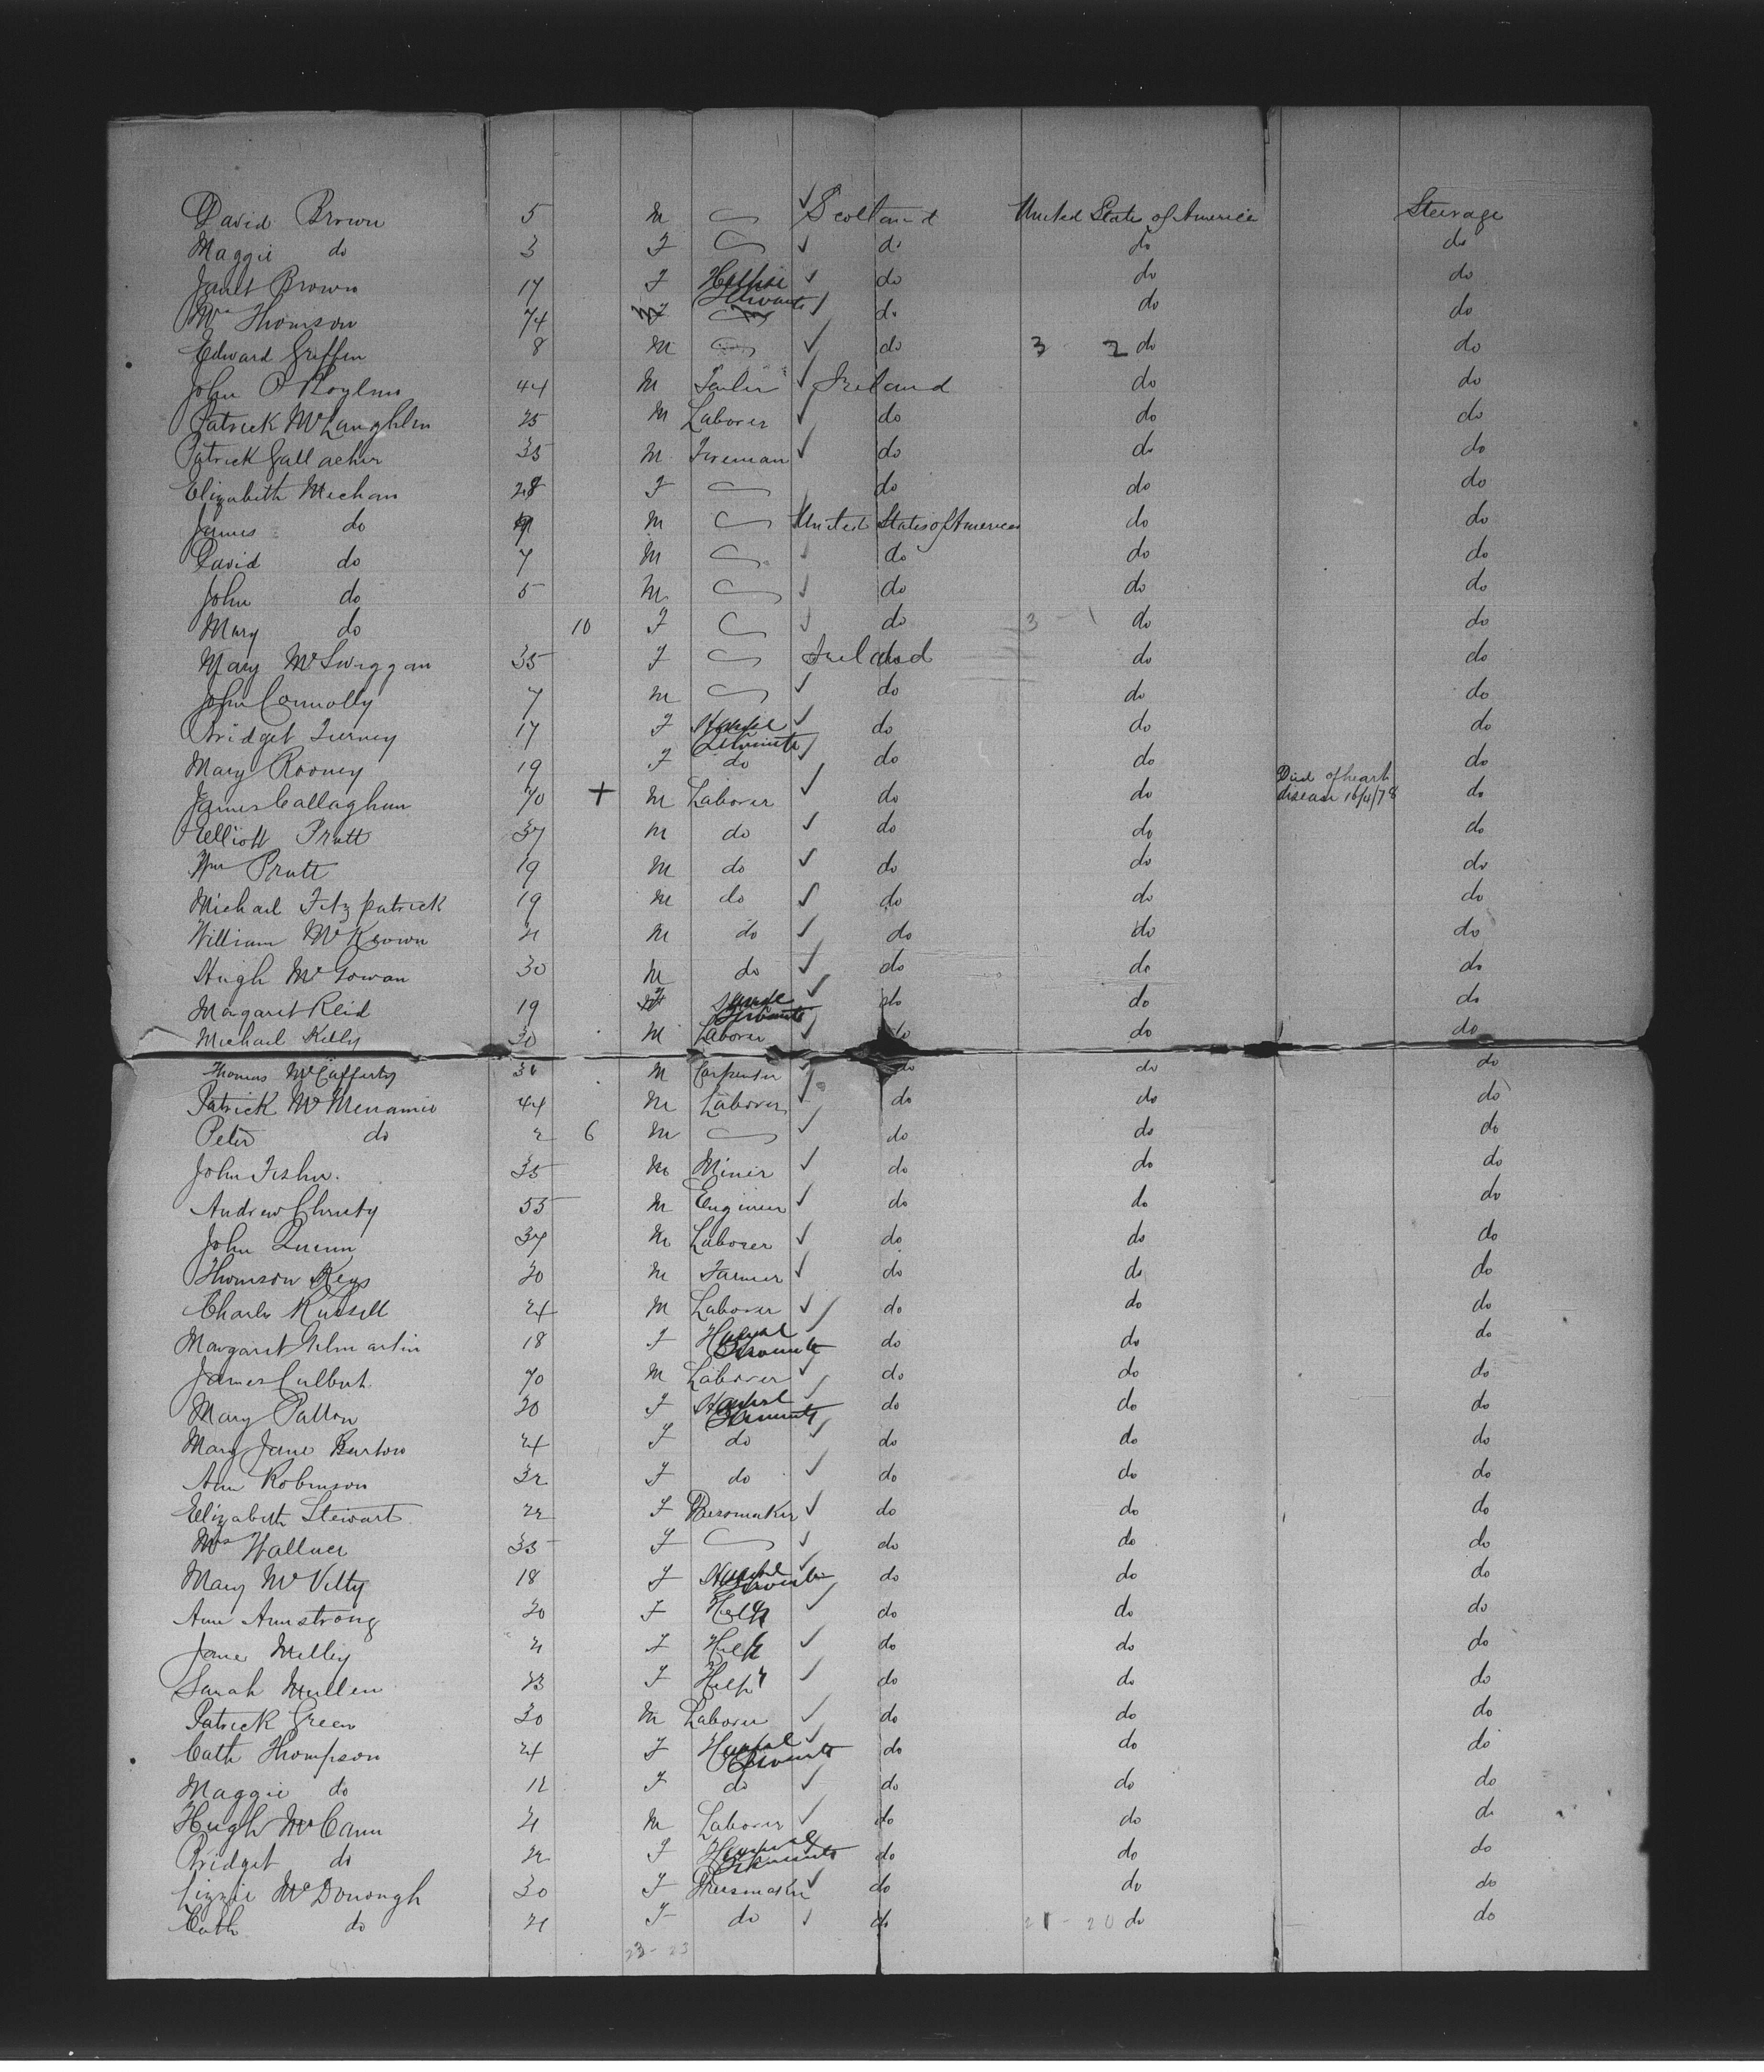 David Brown 5 M Scotland United States of America Steerage
Maggie do 3 F do do do
Janet Brown 17 F Servant do do do
Mrs Thomson 74 F do do do
Edward Griffin 8 M do 3 2 do do
John 44 M Ireland do do
Patrick McLaughlin 25 M Laborer do do do
Patrick Gallacher 35 M Fireman do do do
Elizabeth Mechan 28 F do do do
James do M United States of America do do
David do 7 M do do do
John do 5 M do do do
Mary do 10 F do 3 - 1 do do
Mary McSwiggan 35 F Ireland do do
John Connolly 7 M do do do
Bridget Tierney 17 F do do do
Mary Rooney 19 F do do do do
James Callaghan 70 + M Laborer do do Died of heart do
disease 16/4/78
Elliott Pratt 37 M do do do do
Wm Pratt 19 M do do do do
Michael Fitzpatrick 19 M do do do do
William McKeown 21 M do do do do
Hugh McGowan 30 M do do do do
Margaret Reid 19 F Servant do do do
Michael Kelly 30 M Laborer do do do
Thomas McCafferty M Carpenter do do do
Patrick McMenamie 44 M Laborer do do do
Peter do 2 6 M do do do
John Fisher. 35 M Miner do do do
Andrew Christy 55 M Engineer do do do
John Quinn 37 M Laborer do do do
Thomson Keys 20 M Farmer do do do
Charles Russell 24 M Laborer do do do
Margaret Gilmartin 18 F Servant do do do
James Culbert 70 M Laborer do do do
Mary Patton 20 F Servant do do do
Mary Jane Burton 24 F do do do do
Ann Robinson 32 F do do do do
Elizabeth Stewart 22 F Dressmaker do do do
Mrs Wallace 35 F do do do
Mary McVitty 18 F Servant do do do
Ann Armstrong 20 F Help do do do
Jane Melley 21 F Help do do do
Sarah Mullen 23 F Help do do do
Patrick Green 30 M Laborer do do do
Cath Thompson 24 F Servant do do do
Maggie do 12 F do do do do
Hugh McCann 21 M Laborer do do do
Bridget do 22 F Servant do do do
Lizzie McDonough 30 F Dressmaker do do do
Cath do 21 F do do 21 - 20 do do
23 - 23